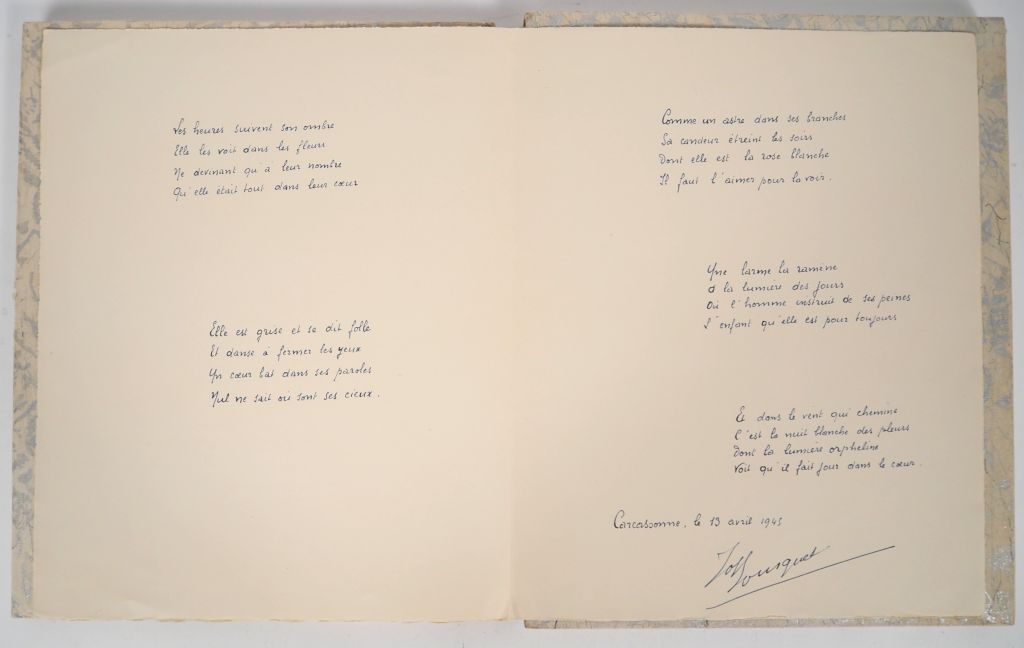 Les heures suivent son ombre
Elle les voit dans les fleurs
Ne devinant qu'à leur nombre
Qu'elle était tout dans leur cœur
Elle est grise et se dit folle
Et danse à fermer les yeux
Un cœur bat dans ses paroles
Nul ne sait où sont ses cieux.
Comme un astre dans ses branches
Sa candeur étreint les soirs
Dont elle est la rose blanche
Il faut l'aimer pour la voir.
Une larme la ramène
à la lumière des jours
Où l'homme instruit de ses peines
L'enfant qu'elle est pour toujours
Et dans le vent qui chemine
C'est la nuit blanche des pleurs
Dont la lumière orpheline
Voit qu'il fait jour dans le cœur.
Carcassonne, le 13 avril 1945
Joë Bousquet